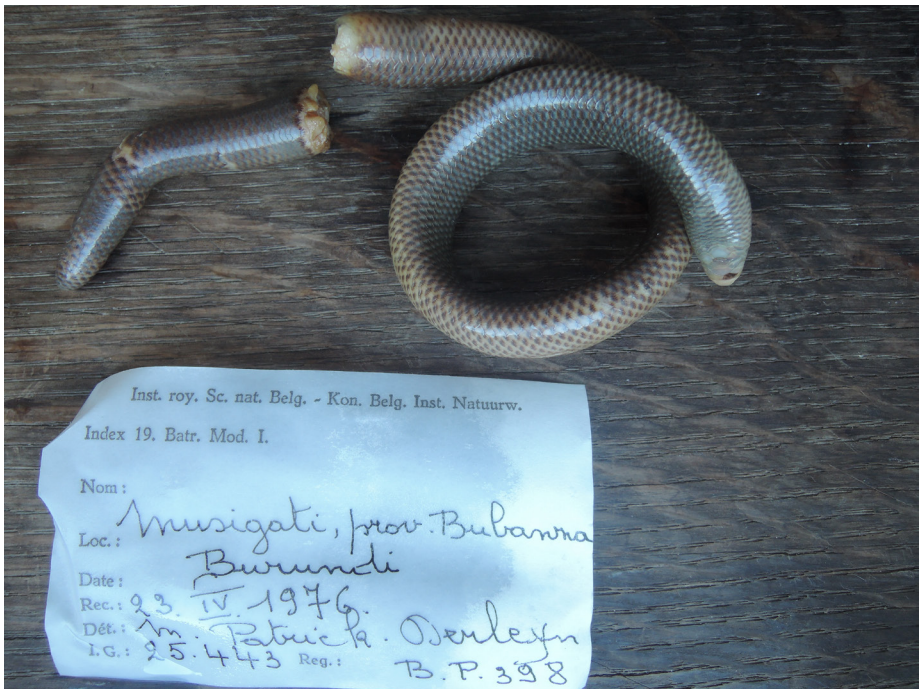 Inst. roy. Sc. nat. Belg. - Kon. Belg. Inst. Natuurw.
Index 19. Batr. Mod. I.
Nom :
Loc. : Musigati, prov. Bubanza
Burundi
Date :
Rec. : 23. IV. 1976.
Dét. : M. Patrick Derleyn
I.G. : 25.443 Reg. :
B.P. 398